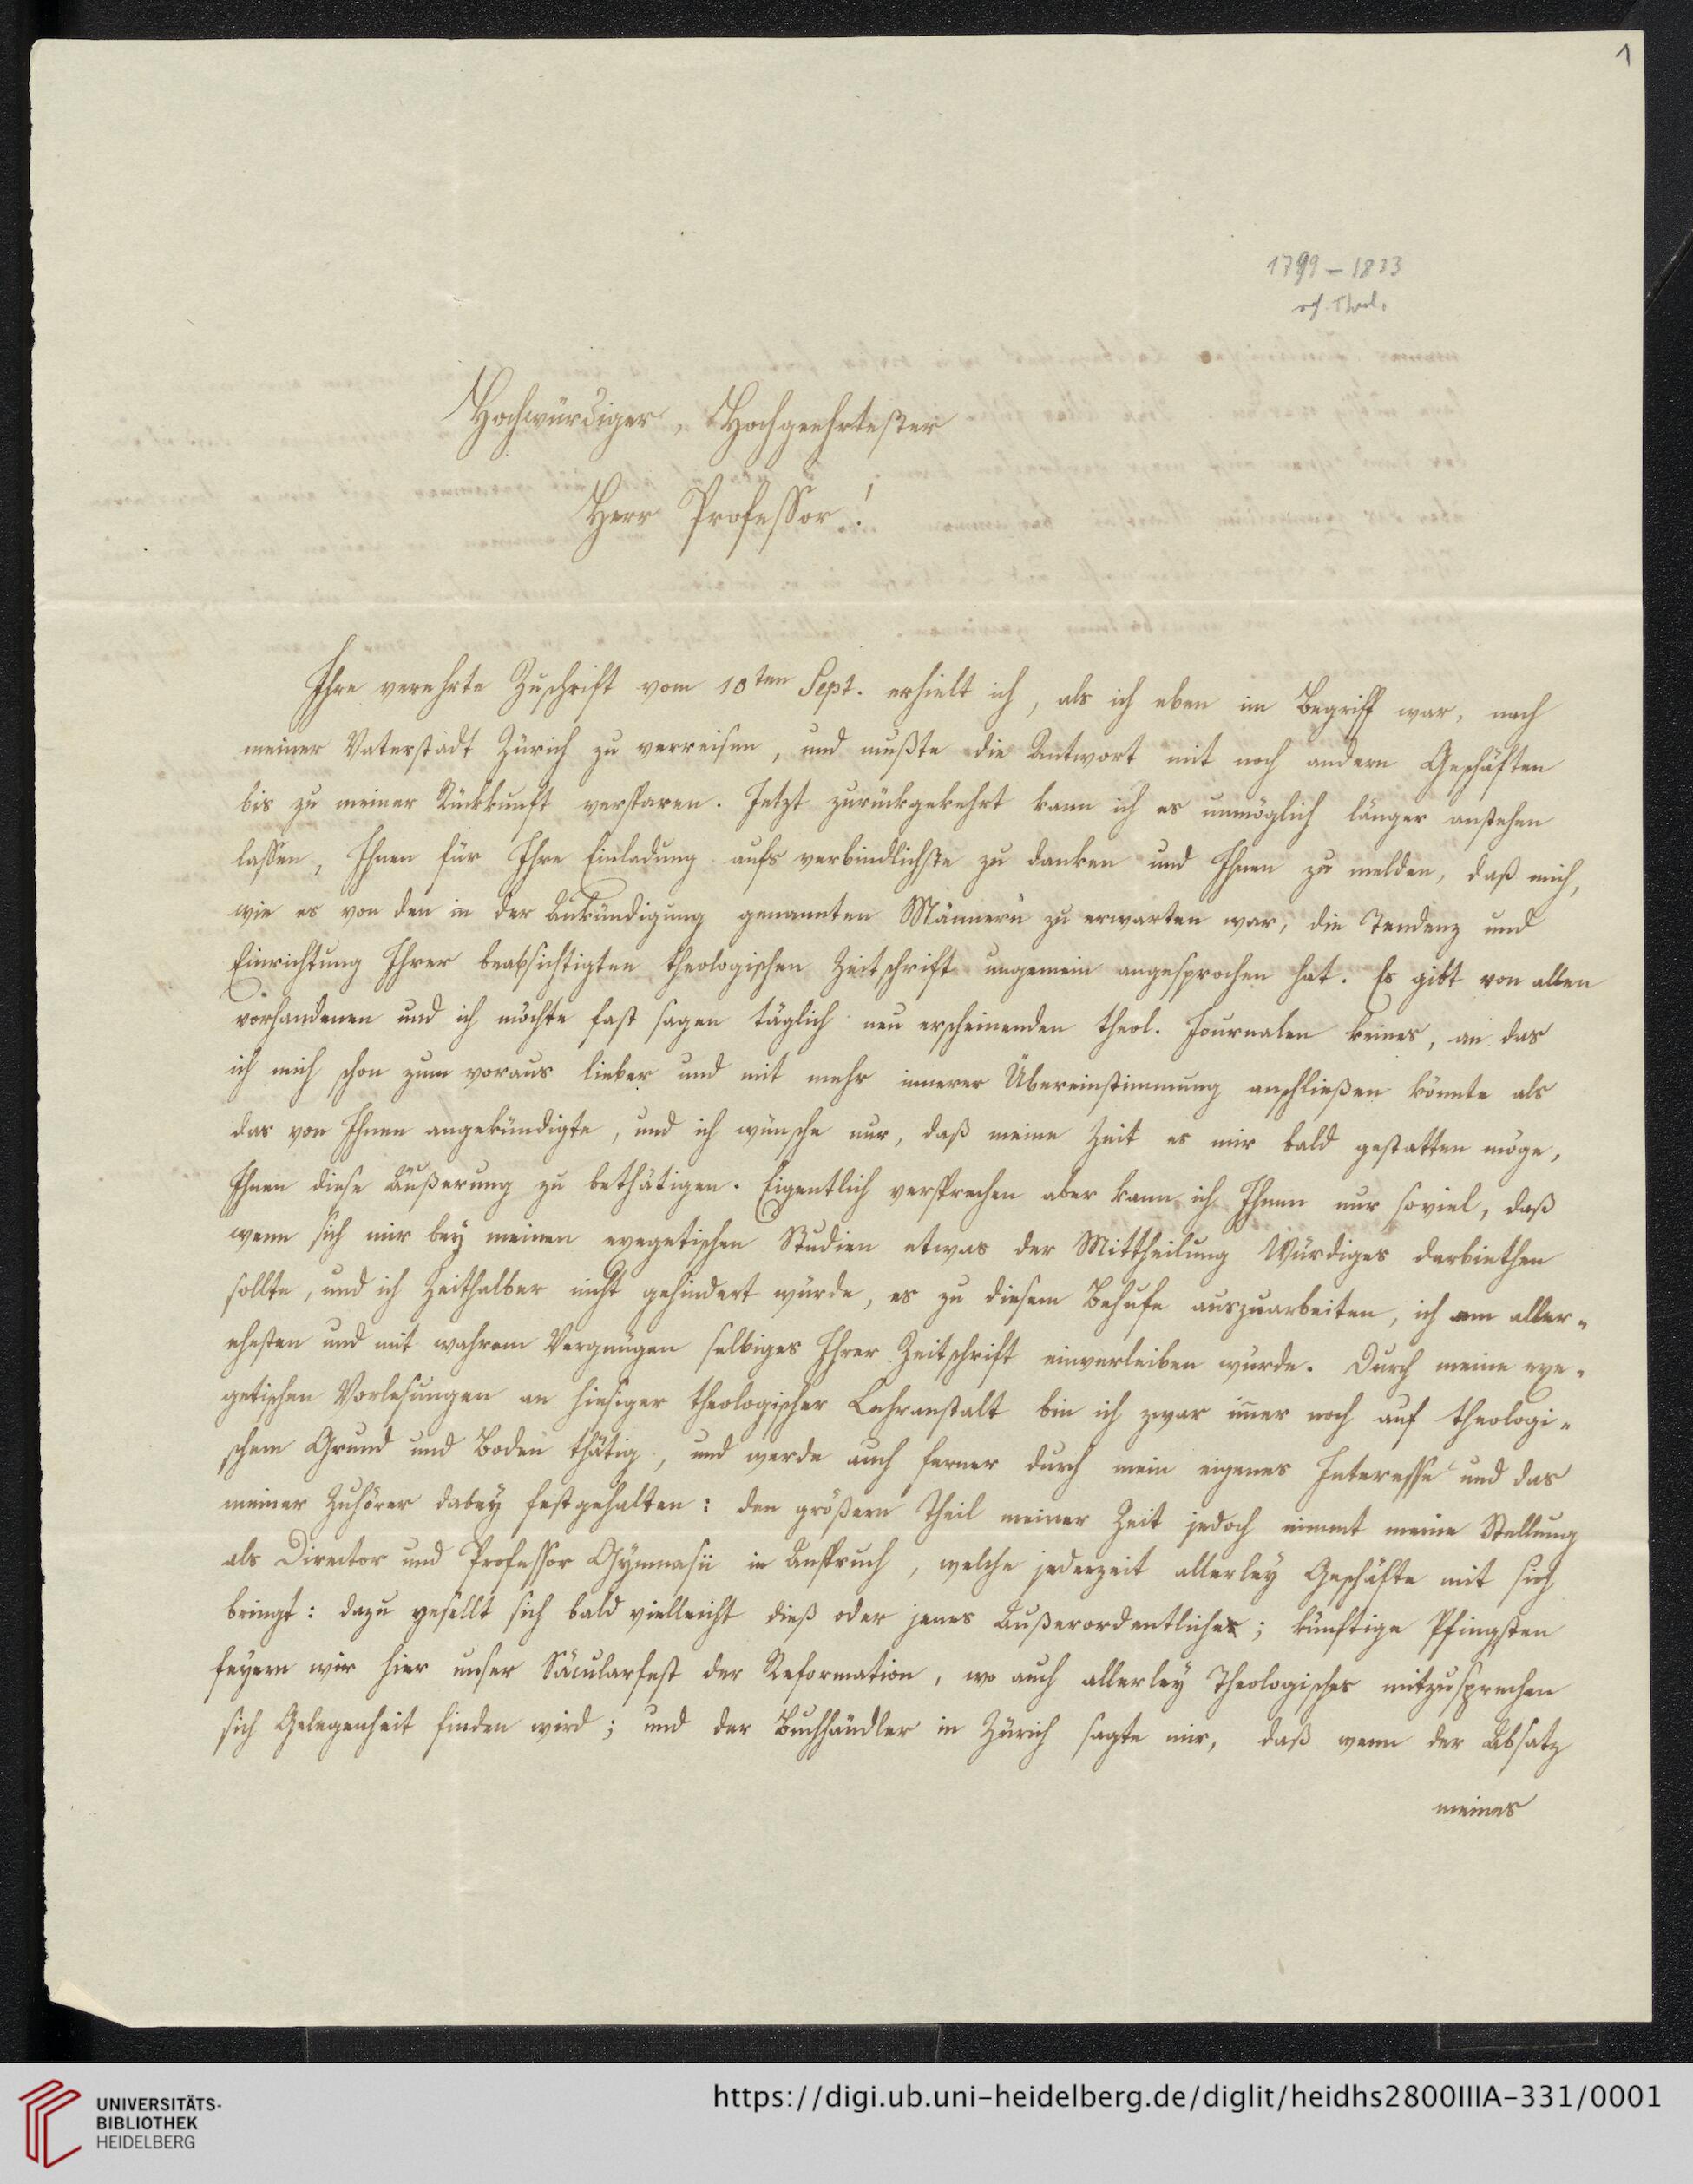 1
1799 – 1833
ref. Theol.
Hochwürdiger, Hochgeehrtester
Herr Professor!
Ihre verehrte Zuschrift vom 10ten Sept. erhielt ich, als ich eben im Begriff war, nach
meiner Vaterstadt Zürich zu verreisen, und mußte die Antwort mit noch andern Geschäften
bis zu meiner Rückkunft versparen. Jetzt zurückgekehrt kann ich es unmöglich länger anstehen
lassen, Ihnen für Ihre Einladung aufs verbindlichste zu danken und Ihnen zu melden, daß mich,
wie es von den in der Ankündigung genannten Männern zu erwarten war, die Tendenz und
Einrichtung Ihrer beabsichtigten theologischen Zeitschrift ungemein angesprochen hat. Es gibt von allen
vorhandenen und ich möchte fast sagen täglich neu erscheinenden theol. Journalen keines, an das
ich mich schon zum voraus lieber und mit mehr innerer Übereinstimmung anschließen könnte als
das von Ihnen angekündigte, und ich wünsche nur, daß meine Zeit es mir bald gestatten möge,
Ihnen diese Äußerung zu bethätigen. Eigentlich versprechen aber kann ich Ihnen nur soviel, daß
wenn sich mir bey meinen exegetischen Studien etwas der Mittheilung Würdiges darbiethen
sollte, und ich Zeithalber nicht gehindert würde, es zu diesem Behufe auszuarbeiten, ich am aller-
ehesten und mit wahrem Vergnügen selbiges Ihrer Zeitschrift einverleiben würde. Durch meine exe-
getischen Vorlesungen an hiesiger theologischer Lehranstalt bin ich zwar immer noch auf theologi-
schem Grund und Boden thätig, und werde auch ferner durch mein eigenes Interesse und das
meiner Zuhörer dabey festgehalten: den größern Theil meiner Zeit jedoch nimmt meine Stellung
als Director und Professor Gymnasii in Anspruch, welche jederzeit allerley Geschäfte mit sich
bringt: dazu gesellt sich bald vielleicht dieß oder jenes Außerordentliche; künftige Pfingsten
feyern wir hier unser Säcularfest der Reformation, wo auch allerley Theologisches mitzusprechen
sich Gelegenheit finden wird; und der Buchhändler in Zürich sagte mir, daß wenn der Absatz
meines
UNIVERSITÄTS-
BIBLIOTHEK
HEIDELBERG
https://digi.ub.uni-heidelberg.de/diglit/heidhs2800IIIA-331/0001